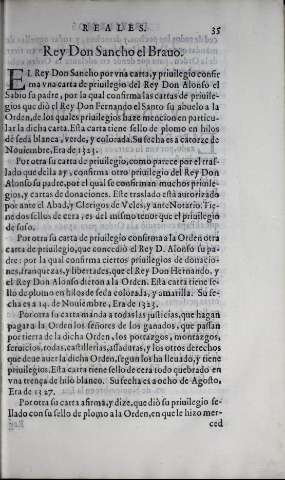 REALES. 35
Rey Don Sancho el Brauo.
EL Rey Don Sancho por vna carta, y priuilegio confir
ma vna carta de priuilegio del Rey Don Alonso el
Sabio su padre, por la qual confirma las cartas de priuile-
gios que diò el Rey Don Fernando el Santo su abuelo a la
Orden, de los quales priuilegios haze mencion en particu-
lar la dicha carta. Esta carta tiene sello de plomo en hilos
de seda blanca, verde, y colorada. Su fecha es a catorze de
Nouiembre, Era de 1323.
Por otra su carta de priuilegio, como parece por el tras-
lado que della ay, confirma otro priuilegio del Rey Don
Alonso su padre, por el qual se confirman muchos priuile-
gios, y cartas de donaciones. Este traslado està autorizado
por ante el Abad, y Clerigos de Veles, y ante Notario: Tie-
ne dos sellos de cera, es del mismo tenor que el priuilegio
de suso.
Por otra su carta de priuilegio confirma a la Orden otra
carta de priuilegio, que concediò el Rey D. Alonso su pa-
dre: por la qual confirma ciertos priuilegios de donacio-
nes, franquezas, y libertades, que el Rey Don Hernando, y
el Rey Don Alonso dieron a la Orden. Esta carta tiene se-
llo de plomo en hilos de seda colorada, y amarilla. Su fe-
cha es a 14. de Nouiembre, Era de 1323.
Por otra su carta manda a todas las justicias, que hagan
pagar a la Orden los señores de los ganados, que passan
por tierra de la dicha Orden, los portazgos, montazgos,
seruicios, rodas, castillerias, assaduras, y los otros derechos
que deue auer la dicha Orden, segun los ha lleuado, y tiene
priuilegios. Esta carta tiene sello de cera todo quebrado en
vna trença de hilo blanco. Su fecha es a ocho de Agosto,
Era de 1327.
Por otra su carta afirma, y dize, que diò su priuilegio se-
llado con su sello de plomo a la Orden, en que le hizo mer-
ced